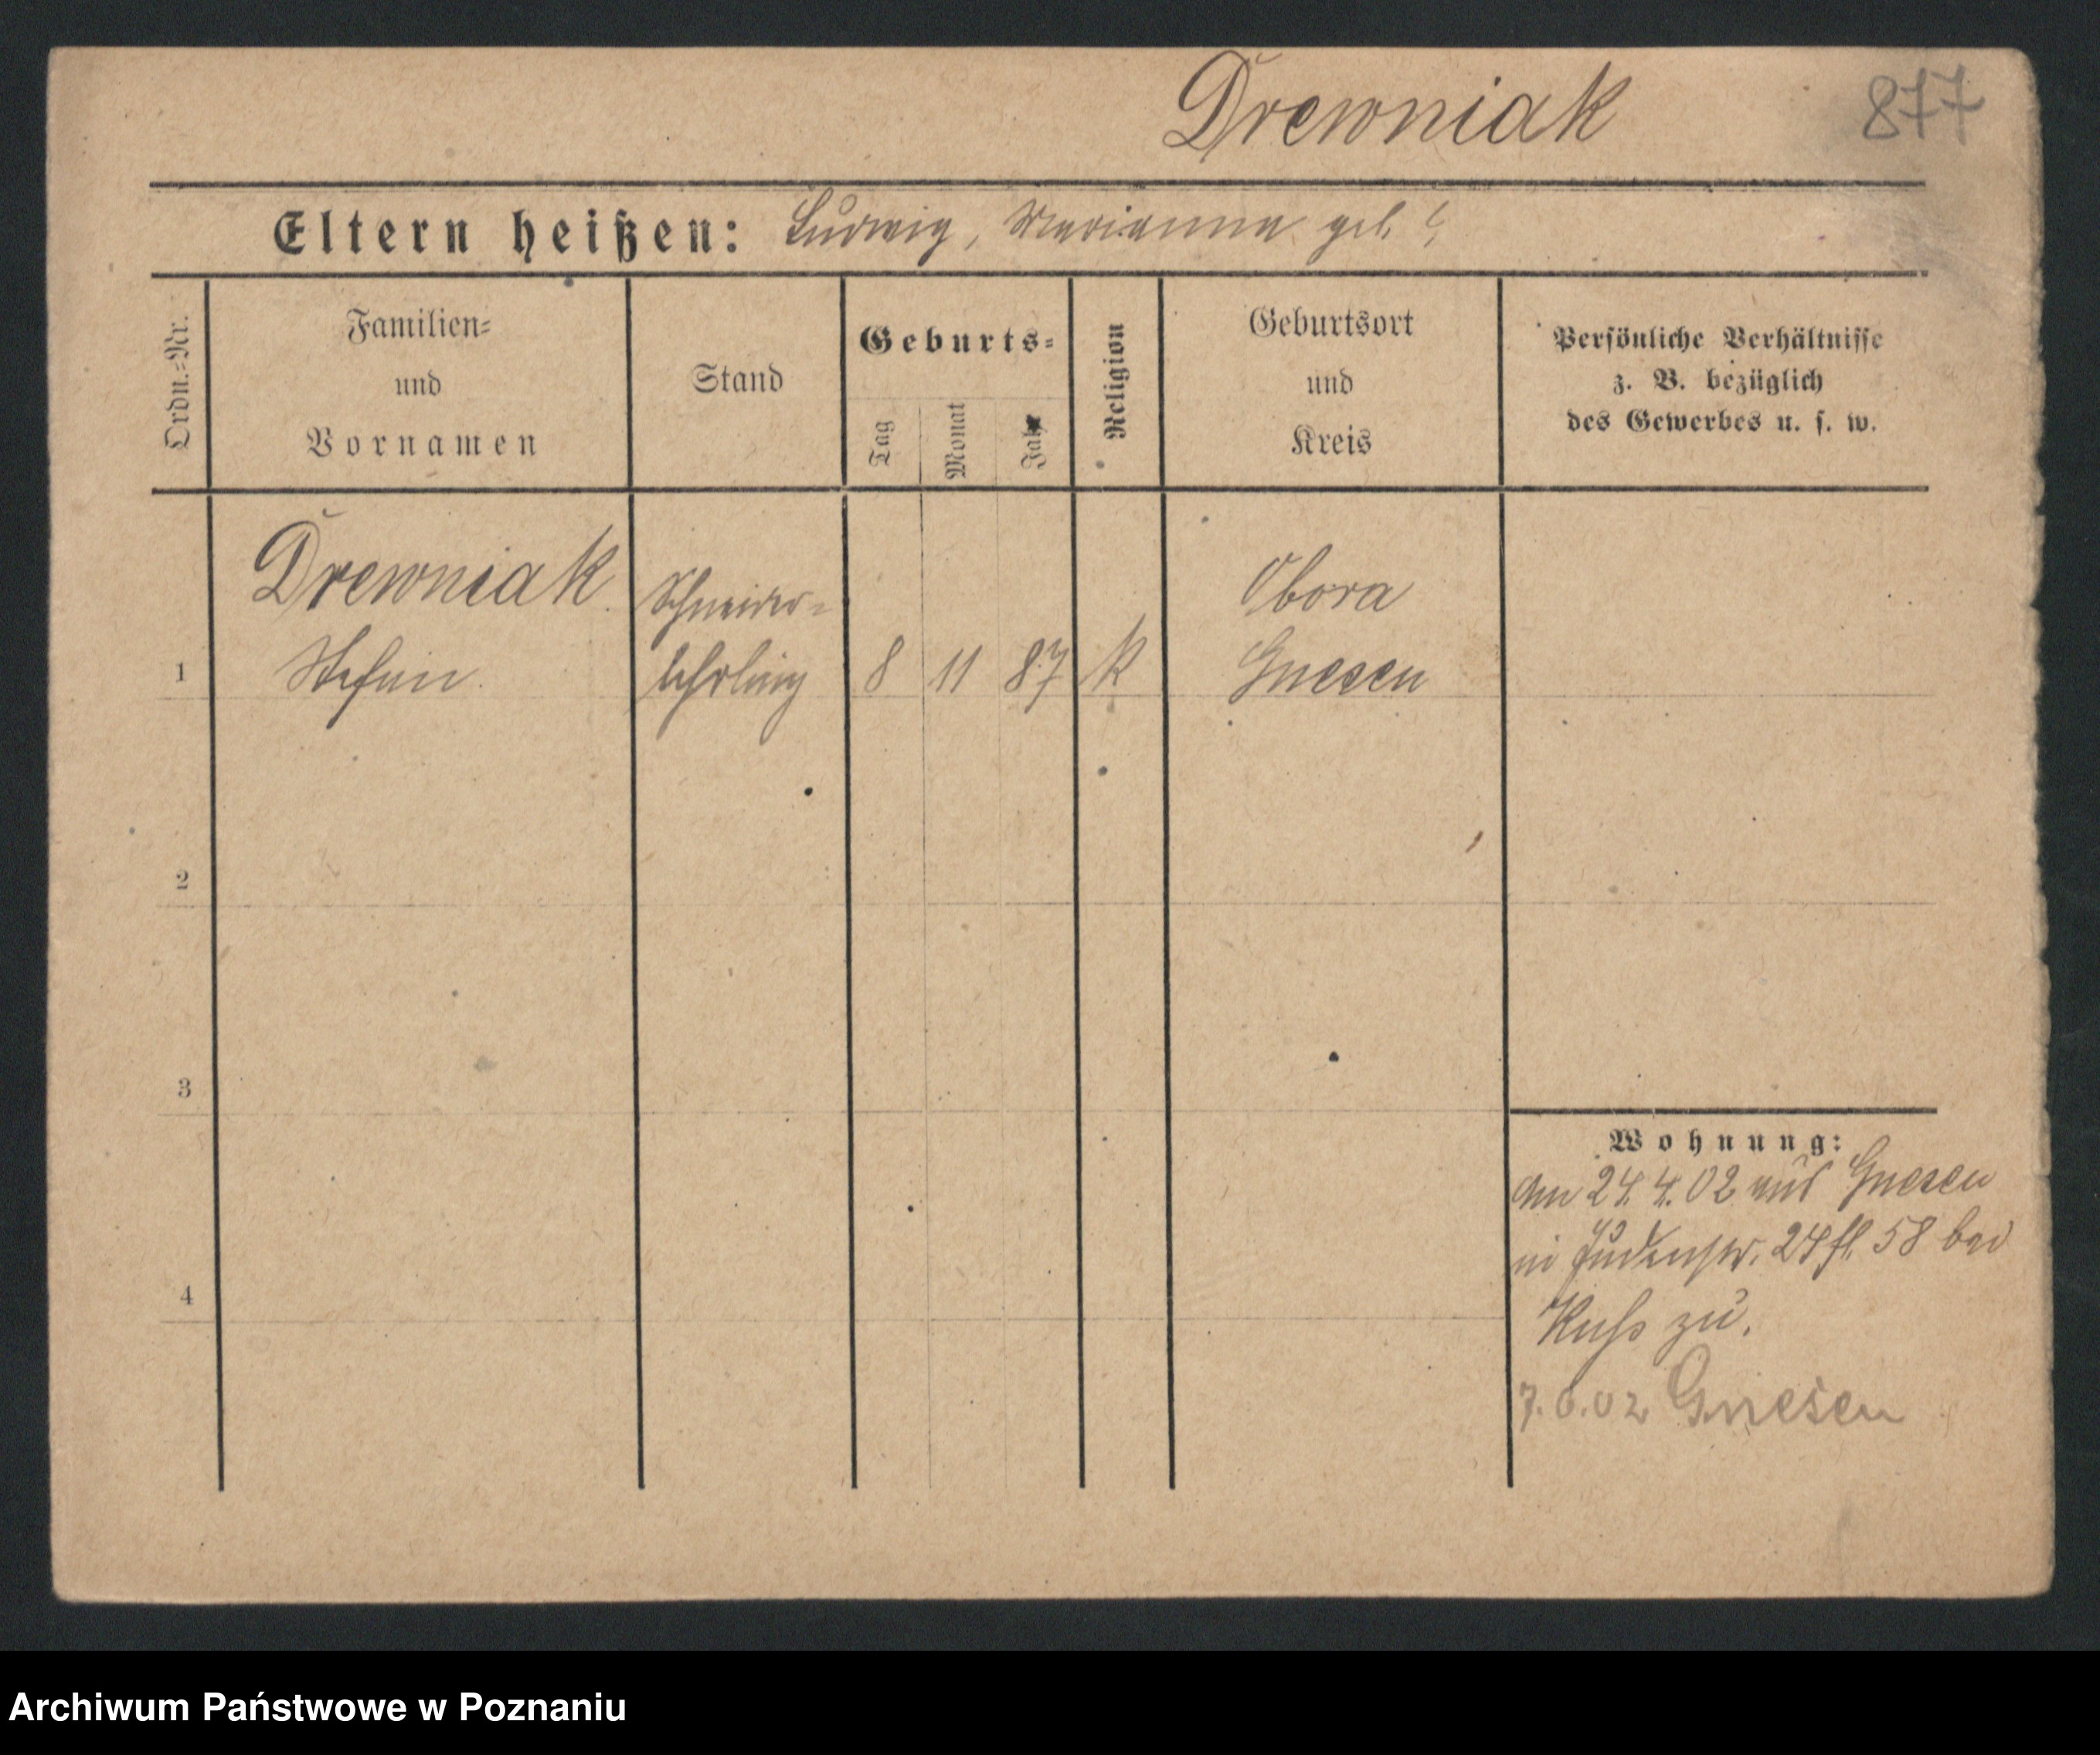 Drewniak
877
Eltern heißen: Ludwig, Marianna geb. ?
Ordn.-Nr.
Familien-
und
Vornamen
Stand
Geburts-
Tag
Monat
Jahr
Religion
Geburtsort
und
Kreis
Persönliche Verhältnisse
z. B. bezüglich
des Gewerbes u. s. w.
1
Drewniak
Stefan
Schneider-
lehrling
8 11 87 K
Obora
Gnesen
2
3
4
Wohnung:
Am 24.4.02 aus Gnesen
in Judenstr. 24 58 bei
zu.
7.6.02 Gnesen
Archiwum Państwowe w Poznaniu